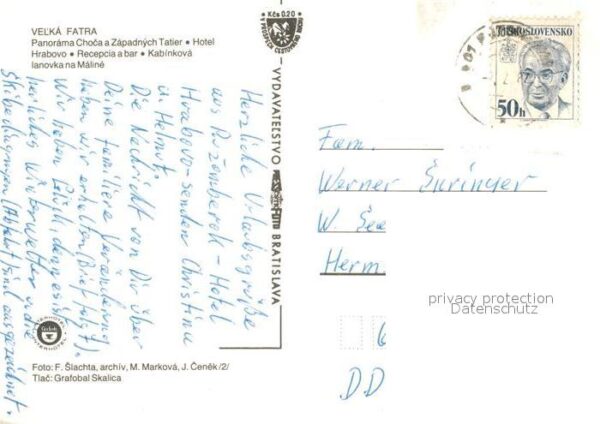 VEĽKÁ FATRA
Panoráma Choča a Západných Tatier • Hotel
Hrabovo • Recepcia a bar • Kabínková
lanovka na Máliné
Herzliche Urlaubsgrüße
aus Ružomberok - Hotel
Hrabovo - senden Christine
u. Helmut.
Die Nachricht von Dir über
Deine familiäre Veränderung
haben wir erhalten (Brief folgt).
Wir haben Glück, denn es ist
herrliches Winterwetter u. die
Skibedingungen (Abfahrt) sind ausgezeichnet.
Foto: F. Šlachta, archív, M. Marková, J. Čeněk /2/
Tlač: Grafobal Skalica
Kčs 0,20
VYDAVATEĽSTVO
BRATISLAVA
ČESKOSLOVENSKO
50h
Fam.
Werner
W. See
Herm.
6
DD
privacy protection
Datenschutz